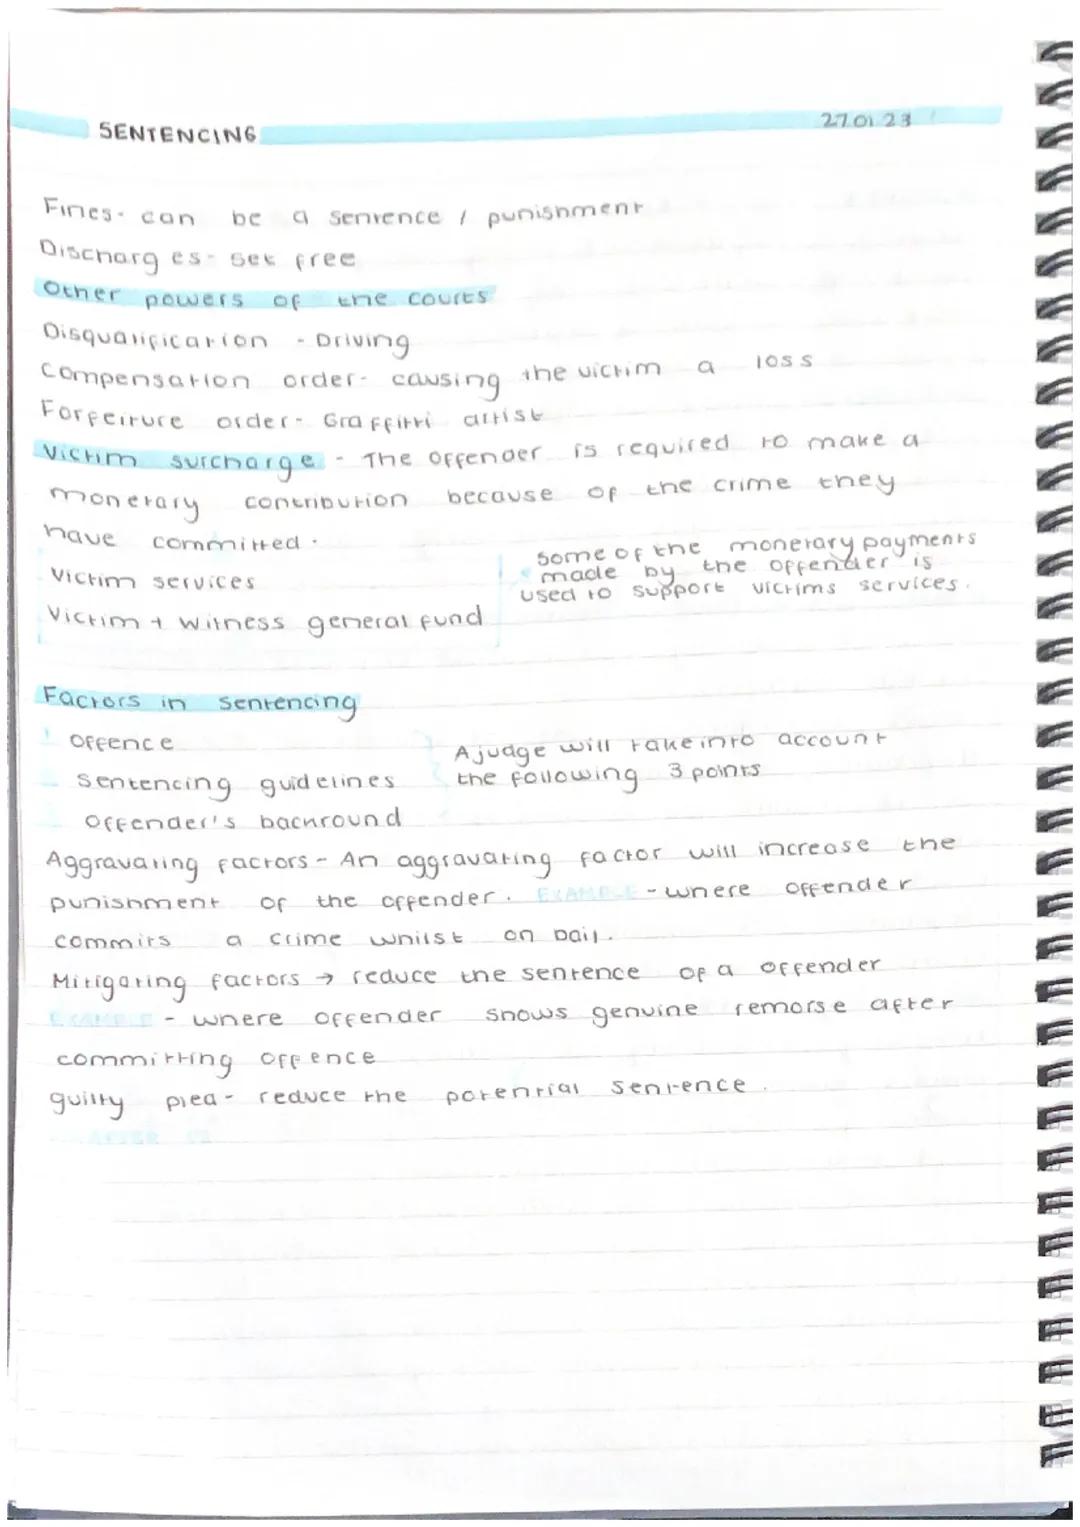 SENTENCING
27.01.23
Fines- can be a sentence / punishment
Discharges- set free
Other powers of the courts
Disqualification - Driving
Compensation order- causing the victim a loss
Forfeiture order- Graffitti artist
Victim surcharge - The offender is required to make a
monetary contribution because of the crime they
have committed.
Victim services
Victim + Witness general fund
some of the monetary payments
made by the offender is
used to support victims services.
Factors in sentencing
offence
sentencing guidelines
offender's backround
A judge will take into account
the following 3 points
Aggravating factors - An aggravating factor will increase the
punishment of the offender. EXAMPLE - where offender
commits a crime whilst on bail.
Mitigating factors → reduce the sentence of a offender
EXAMPLE - where offender shows genuine remorse after
committing offence
guilty plea - reduce the potential sentence.